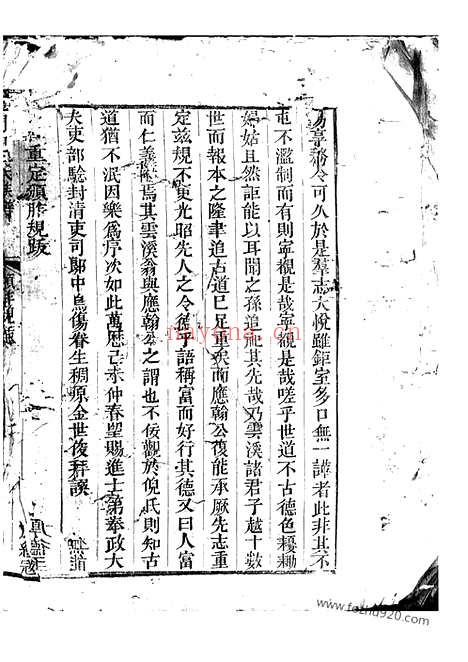 易享務令可久於是羣志大悅雖鉅室多口無一讙者此非其不
屯不濫制而有則寧覩是哉寧覩是哉嗟乎世道不古德色耰耡
婦姑且然詎能以耳聞之孫追祀其先哉乃雲溪諸君子越十數
世而報本之隆聿追古道已足重矣而應翰公復能承厥先志重
定兹規不更光昭先人之令德乎語稱富而好行其德又曰人富
而仁義附焉其雲溪翁與應翰公之謂也不佞觀於倪氏則知古
道猶不泯因樂爲序次如此萬曆己未仲春望賜進士第奉政大
夫吏部驗封清吏司郎中烏傷眷生稠原金世俊拜譔
重定頒胙規跋
nayona.cn
www.fozhu920.com